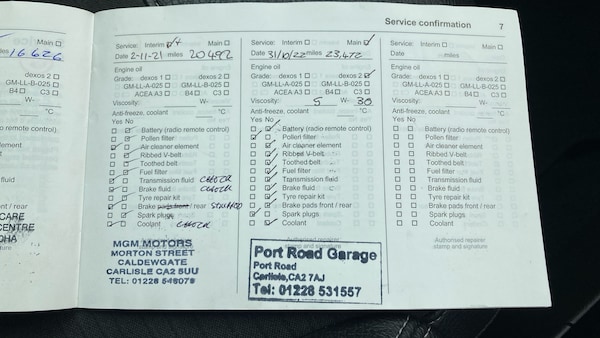 Service confirmation 7
miles 16626
dexos 2
GM-LL-B-025
C3
°C
o remote control)
er
element
elt
fluid
/ rear
CARE
CENTRE
OHA
Service: Interim Main
Date 2-11-21 miles 20492
Engine oil
Grade: dexos 1 dexos 2
GM-LL-A-025 GM-LL-B-025
ACEA A3 B4 C3
Viscosity: W-
Anti-freeze, coolant °C
Yes No
Battery (radio remote control)
Pollen filter
Air cleaner element
Ribbed V-belt
Toothed belt
Fuel filter
Transmission fluid CHECK
Brake fluid CHECK
Tyre repair kit
Brake pads front / rear
Spark plugs
Coolant CHECK
MGM MOTORS
MORTON STREET
CALDEWGATE
CARLISLE CA2 5UU
TEL: 01228 548079
Service: Interim Main
Date 31/10/22 miles 23,472
Engine oil
Grade: dexos 1 dexos 2
GM-LL-A-025 GM-LL-B-025
ACEA A3 B4 C3
Viscosity: 5 W- 30
Anti-freeze, coolant °C
Yes No
Battery (radio remote control)
Pollen filter
Air cleaner element
Ribbed V-belt
Toothed belt
Fuel filter
Transmission fluid
Brake fluid
Tyre repair kit
Brake pads front / rear
Spark plugs
Coolant
Authorised repairer
stamp and signature
Port Road Garage
Port Road
Carlisle, CA2 7AJ
Tel: 01228 531557
Service: Interim Main
Date miles
Engine oil
Grade: dexos 1 dexos 2
GM-LL-A-025 GM-LL-B-025
ACEA A3 B4 C3
Viscosity: W-
Anti-freeze, coolant °C
Yes No
Battery (radio remote control)
Pollen filter
Air cleaner element
Ribbed V-belt
Toothed belt
Fuel filter
Transmission fluid
Brake fluid
Tyre repair kit
Brake pads front / rear
Spark plugs
Coolant
Authorised repairer
stamp and signature